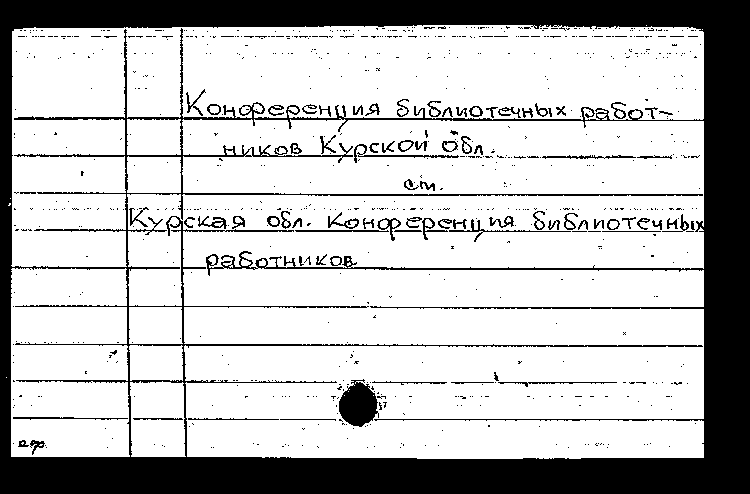 Конференция библиотечных работ-
ников Курской обл.
см.
Курская обл. Конференция библиотечных
работников